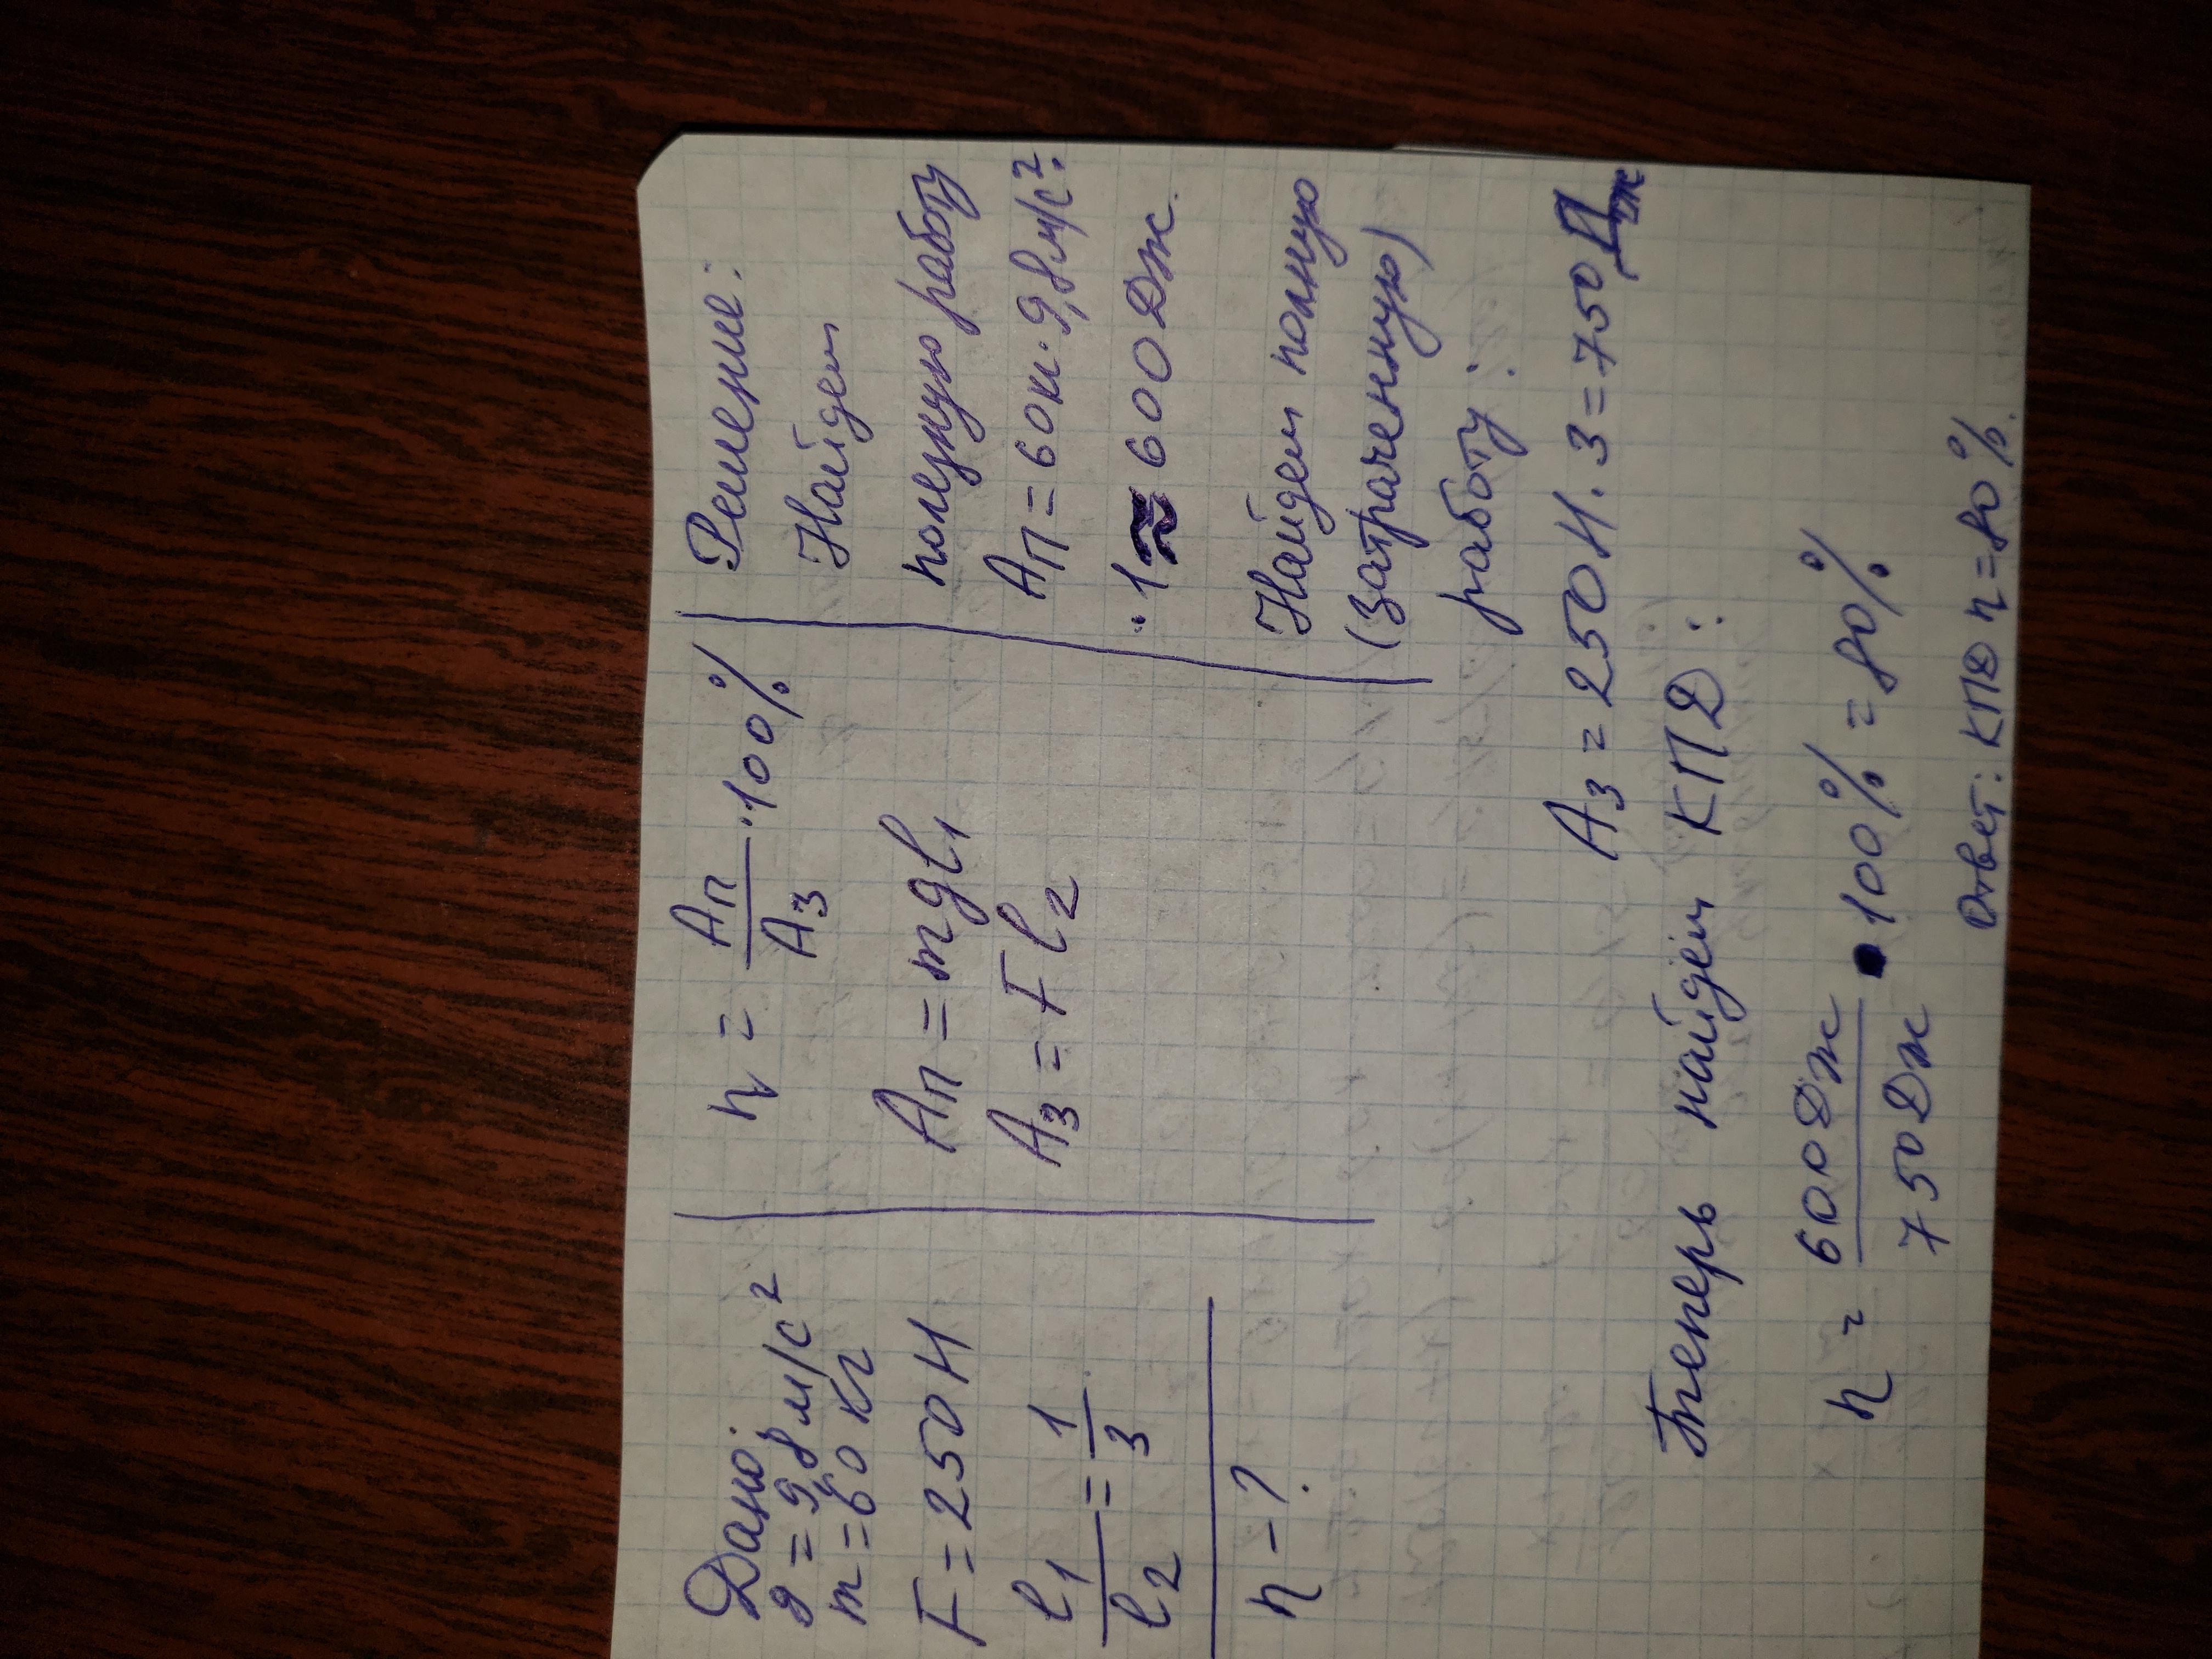 Дано:
g = 9,8 м/с²
m = 60 кг
F = 250 Н
l₁/l₂ = 1/3
η - ?
η = Aп/Aз · 100%
Aп = mgl₁
Aз = Fl₂
Решение:
Найдем
полезную работу
Aп = 60 кг · 9,8 м/с² ·
· 1 ≈ 600 Дж.
Найдем полную
(затраченную)
работу:
Aз = 250 Н · 3 = 750 Дж
Теперь найдем КПД:
η = 600 Дж/750 Дж · 100% = 80%
Ответ: КПД η = 80%.